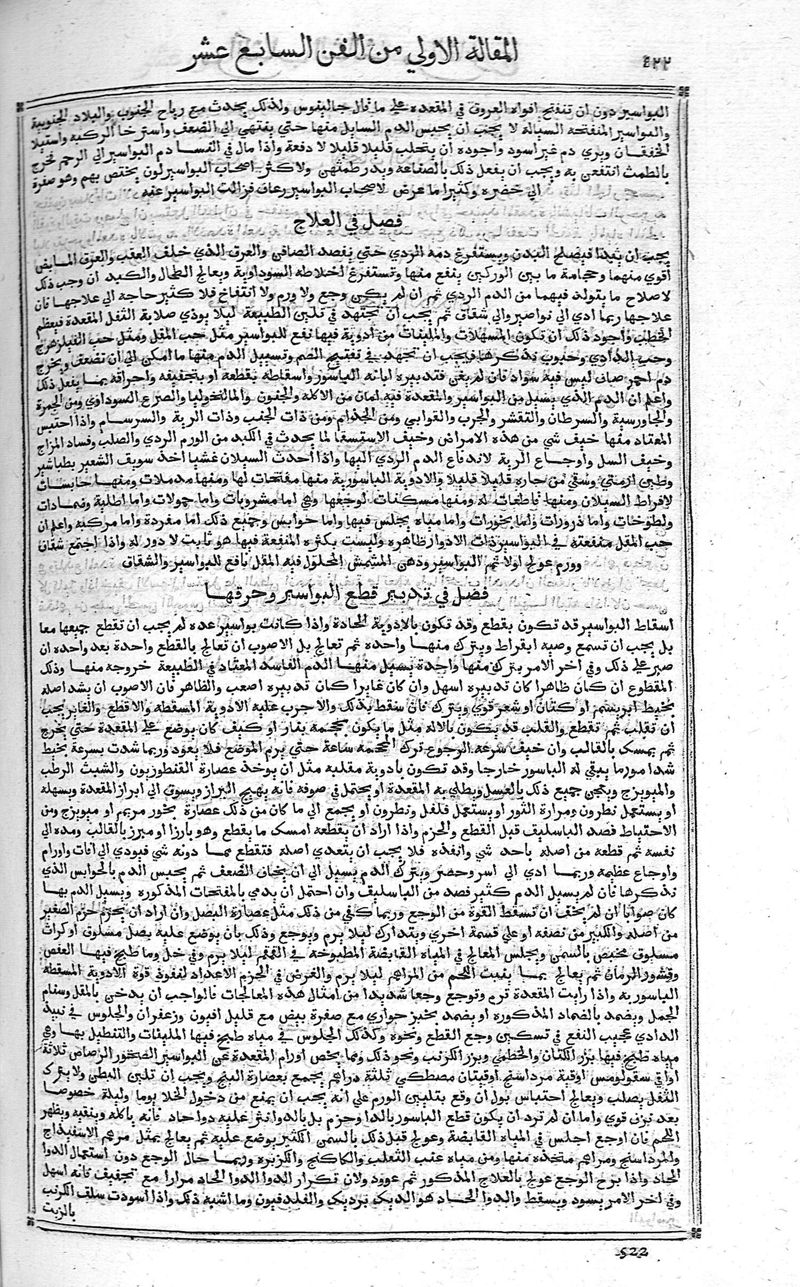 ٤٢٢
المقالة الاولي من الفن السابع عشر
البواسير دون ان تنفتح افواه العروق في المقعده علي ما قال جالينوس ولذلك يحدث مع رياح الجنوب والبلاد الجنوبية
والبواسير المنفتحه السياله لا يجب ان يحبس الدم السايل منها حتي ينتهي الي الضعف واسترخا الركبه واستيلا
الخفقان ويري دم غير اسود واجوده ان يتحلب قليلا قليلا لا دفعة واذا مال في النسا دم البواسير الي الرحم فخرج
بالطمث انتفعن به ويجب ان يفعل ذلك بالصناعه ويدر طمثهن ولاكثر اصحاب البواسير لون يختص بهم وهو صفرة
الي خضره وكثيرا ما عرض لاصحاب البواسير رعاف فزالت البواسير عنه
فصل في العلاج
يجب ان يبدا فيصلح البدن ويستفرغ دمه الردي حتي يفصد الصافن والعرق الذي خلف العقب والعرق المابض
اقوي منهما وحجامة ما بين الوركين ينفع منها وتستفرغ اخلاطه السوداوية ويعالج الطحال والكبد ان وجب ذلك
لاصلاح ما يتولد فيهما من الدم الردي ثم ان لم يكن وجع ولا ورم ولا انتفاخ فلا كثير حاجه الي علاجها فان
علاجها ربما ادي الي نواصير والي شقاق ثم يجب ان يجتهد في تليين الطبيعة ليلا يوذي صلابة الثفل المقعدة فيعظم
الخطب واجود ذلك ان تكون المسهلات والملينات من ادوية فيها نفع للبواسير مثل حب المقل ومثل حب الفيلزهرج
وحب الدادي وحبوب نذكرها فيجب ان تجتهد في تفتيح الصم وتسييل الدم منها ما امكن الي ان تضعف ويخرج
دم احمر صاف ليس فيه سواد فان لم يغن فتدبيره ابانه الباسور واسقاطه بقطعه او بتجفيفه واحراقه بما يفعل ذلك
واعلم ان الدم الذي يسيل من البواسير والمقعدة فيه امان من الاكله والجنون والمالنخوليا والصرع السوداوي ومن الحمرة
والجاورسية والسرطان والتقشر والجرب والقوابي ومن الجذام ومن ذات الجنب وذات الرية والسرسام واذا احتبس
المعتاد منها خيف شي من هذه الامراض وخيف الاستسقا لما يحدث في الكبد من الورم الردي والصلب وفساد المزاج
وخيف السل واوجاع الرية لاندفاع الدم الردي اليها واذا احدث السيلان غشيا اخذ سويق الشعير بطباشير
وطين ارمني وسقي من حاره قليلا قليلا والادوية الباسورية منها مفتحات لها ومنها مدملات ومنها حابسات
لافراط السيلان ومنها قاطعات له ومنها مسكنات لوجعها وهي اما مشروبات واما حمولات واما اطلية وضمادات
ولطوخات واما ذرورات واما بخورات واما مياه يجلس فيها واما حوابس وجميع ذلك اما مفردة واما مركبه واعلم ان
حب المقل منفعته في البواسير ذات الادوار ظاهره وليست بكثره المنفعة فيها هو ثابت لا دور له واذا اجتمع شقاق
وورم عولج اولا ثم البواسير ودهن المشمش المحلول فيه المقل نافع للبواسير والشقاق
فصل في تدبير قطع البواسير وحرقها
اسقاط البواسير قد تكون بقطع وقد تكون بالادوية الحادة واذا كانت بواسير عده لم يجب ان تقطع جميعها معا
بل يجب ان تسمع وصيه ابقراط ويترك منها واحده ثم تعالج بل الاصوب ان تعالج بالقطع واحدة بعد واحده ان
صبر علي ذلك وفي اخر الامر يترك منها واحدة يسيل منها الدم الفاسد المعتاد في الطبيعة خروجه منها وذلك
المقطوع ان كان ظاهرا كان تدبيره اسهل وان كان غايرا كان تدبيره اصعب والظاهر فان الاصوب ان يشد اصله
بخيط ابريسم او كتان او شعر قوي ويترك فان سقط بذلك والا جرب عليه الادوية المسقطه والا قطع والغاير يجب
ان تقلب ثم تقطع والقلب قد يكون بالاله مثل ما يكون بمحجمة بنار او كيف كان يوضع علي المقعدة حتي يخرج
ثم يمسك بالقالب وان خيف سرعة الرجوع ترك المحجمه ساعة حتي يرم الموضع فلا يعود وربما شدت بسرعة بخيط
شدا مورما يبقي له الباسور خارجا وقد تكون بادوية مقلبه مثل ان يوخذ عصارة القنطوريون والشبث الرطب
والميويزج ويعجن جميع ذلك بالعسل ويطلي به المقعدة او يحتمل في صوفه فانه يهيج البراز ويسوق الي ابراز المقعدة ويسهله
او يستعمل نطرون ومرارة الثور او يستعمل فلفل ونطرون او يجمع الي ما كان من ذلك عصارة بخور مريم او ميويزج ومن
الاحتياط فصد الباسليق قبل القطع والحزم واذا اراد ان يقطعه امسك ما يقطع وهو بارزا او مبرز بالقالب ومده الي
نفسه ثم قطعه من اصله باحد شي وانفذه فلا يجب ان يتعدي اصله فتقطع مما دونه شي فيودي الي افات واورام
واوجاع عظيمة وربما ادي الي اسر وحصر ويترك الدم يسيل الي ان يخاف الضعف ثم يحبس الدم بالحوابس الذي
نذكرها فان لم يسيل الدم كثير فصد من الباسليق وان احتمل ان يدمي بالمفتحات المذكوره ويسيل الدم بها
كان صوابا ان لم يخف ان تسقط القوة من الوجع وربما كفي من ذلك مثل عصارة البصل وان اراد ان يحزم حزم الصغير
من اصله والكبير من نصفه او علي قسمة اخري ويتدارك ليلا يرم ويوجع وذلك بان يوضع عليه بصل مسلوق او كراث
مسلوق مخبص بالسمن ويجلس المعالج في المياه القابضة المطبوخه في القمقم ليلا يرم وفي خل وما طبخ فيها العفص
وقشور الرمان ثم يعالج بما ينبت اللحم من المراهم ليلا يرم والغرض في الحزم الاعداد لنفوذ قوة الادوية المسقطه
الباسوريه واذا رايت المقعدة ترم وتوجع وجعا شديدا من امثال هذه المعالجات فالواجب ان يدخن بالمقل وسنام
الجمل ويضمد بالضماد المذكوره او يضمد بخبز حواري مع صفرة بيض مع قليل افيون وزعفران والجلوس في نبيذ
الدادي عجيب النفع في تسكين وجع القطع ونحوه وكذلك الجلوس في مياه طبخ فيها الملينات والتنطيل بها وهي
مياه طبخ فيها بزر الكتان والخطمي وبزر الكرنب ونحو ذلك ومما يخص اورام المقعدة عن البواسير الرصاص ثلاثة
اواقي سقولومس اوقية مرداسنج اوقيتان مصطكي ثلثة دراهم يجمع بعصارة البنج ويجب ان تلين البطن ولا يترك
الثفل يصلب ويعالج احتباس بول ان وقع بتليين الورم علي انه يجب ان يمنع من دخول الخلا يوما وليلة خصوصا
بعد نزف قوي واما ان لم ترد ان يكون قطع الباسور بالدا وحزم بل بالدوا نثر عليه دوا حاد فانه ياكله وينقيه ويظهر
اللحم فان اوجع اجلس في المياه القابضة وعولج قبل ذلك بالسمن الكثير يوضع عليه ثم يعالج بمثل مرهم الاسفيداج
والمرداسنج ومراهم متخذه منها ومن مياه عنب الثعلب والكاكنج والكزبره وربما حال الوجع دون استعمال الدوا
الحاد واذا برح الوجع عولج بالعلاج المذكور ثم عوود ولان تكرار الدوا الدوا الحاد مرارا مع تجفيف فانه اسهل
وفي اخر الامر يسود ويسقط والدوا الحاد هو الديك برديك والفلدفيون وما اشبه ذلك واذا اسودت سلف الكرنب
بالزيت
522